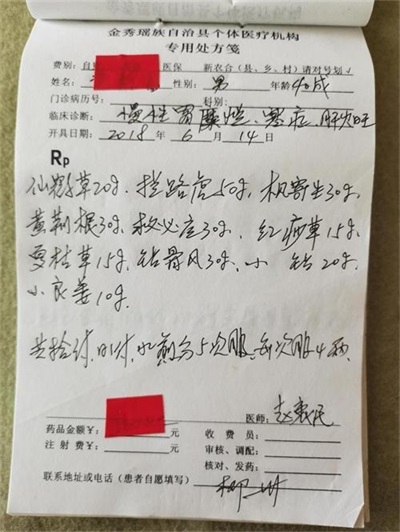 金秀瑶族自治县个体医疗机构
专用处方笺
费别: 医保 新农合(县、乡、村)请对号划√
姓名: 性别: 男 年龄 40岁
门诊病历号: 科别:
临床诊断: 慢性胃糜烂、寒症、肝火旺
开具日期: 2018年6月14日
Rp
仙鹤草20g. 拦路虎50g. 枫寄生30g.
黄荆根30g. 救必应30g. 红痧草15g.
夏枯草15g. 钻骨风30g. 小钻20g.
小良姜10g.
共拾付, 日1付, 水煎分5次服, 每次服4两.
医师: 赵
药品金额¥: 元 收费员:
注射费¥: 元 审核、调配:
核对、发药:
联系地址或电话(患者自愿填写)